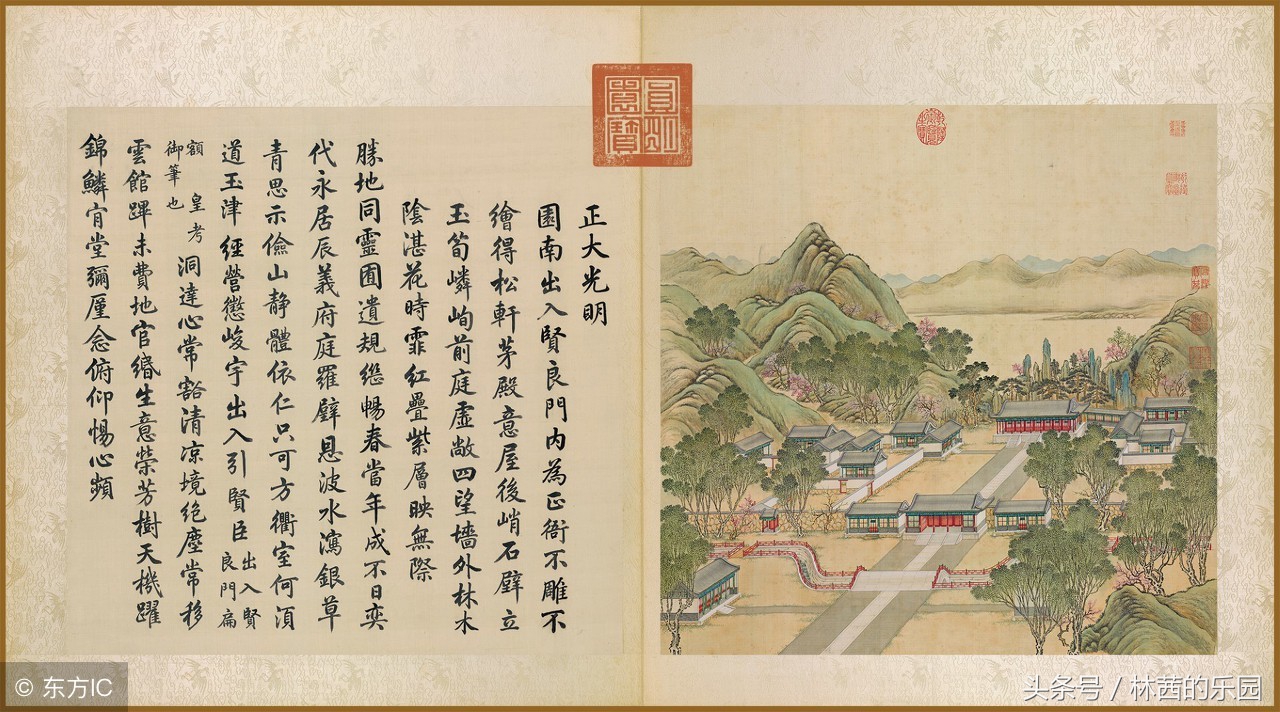 正大光明
園南出入賢良門內為正衙不雕不
繪得松軒茅殿意屋後峭石壁立
玉筍嶙峋前庭虛敞四望墻外林木
陰湛花時霏紅疊紫層映無際
勝地同靈囿遺規継暢春當年成不日奕
代永居辰義府庭羅壁恩波水瀉銀草
青思示儉山靜體依仁只可方衢室何湏
道玉津經營懲峻宇出入引賢臣出入賢良門扁
額皇考御筆也洞達心常豁清涼境絕塵常移
雲館蹕未費地官緡生意榮芳樹天機躍
錦鱗肯堂彌廑念俯仰惕心頻
圓明園寶
© 东方IC
头条号 / 林茜的乐园